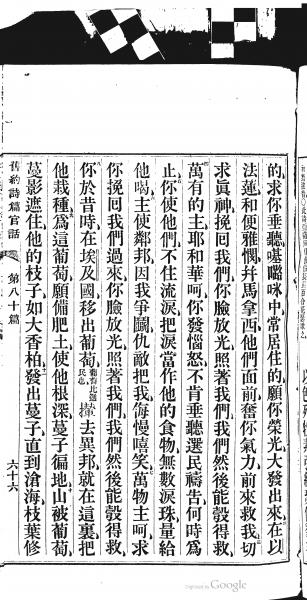 的求你垂聽𠼻嚕咪中常居住的願你榮光大發出來在以
法蓮和便雅憫幷馬拿西他們面前奮你氣力前來救我切
求眞神挽回我們你臉放光照著我們我們然後能彀得救
萬有的主耶和華呵你發惱怒不肯垂聽選民禱告何時爲
止你使他們不住流淚把淚當作他的食物無數淚珠量給
他喝主使鄰邦因我爭鬭仇敵把我侮慢嘻笑萬物主呵求
你挽回我們過來你臉放光照著我們我們然後能彀得救
你於昔時在埃及國移出葡萄葡萄比選民也攆去異邦就在這裏把
他栽種爲這葡萄願備肥土使他根深蔓子徧地山被葡萄
蔓影遮住他的枝子如大香柏發出蔓子直到滄海枝葉修
舊約詩篇官話 第八十篇 六十六
Digitized by Google